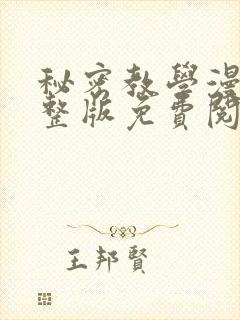 秘密教學漫
整版免費閱
王邦賢